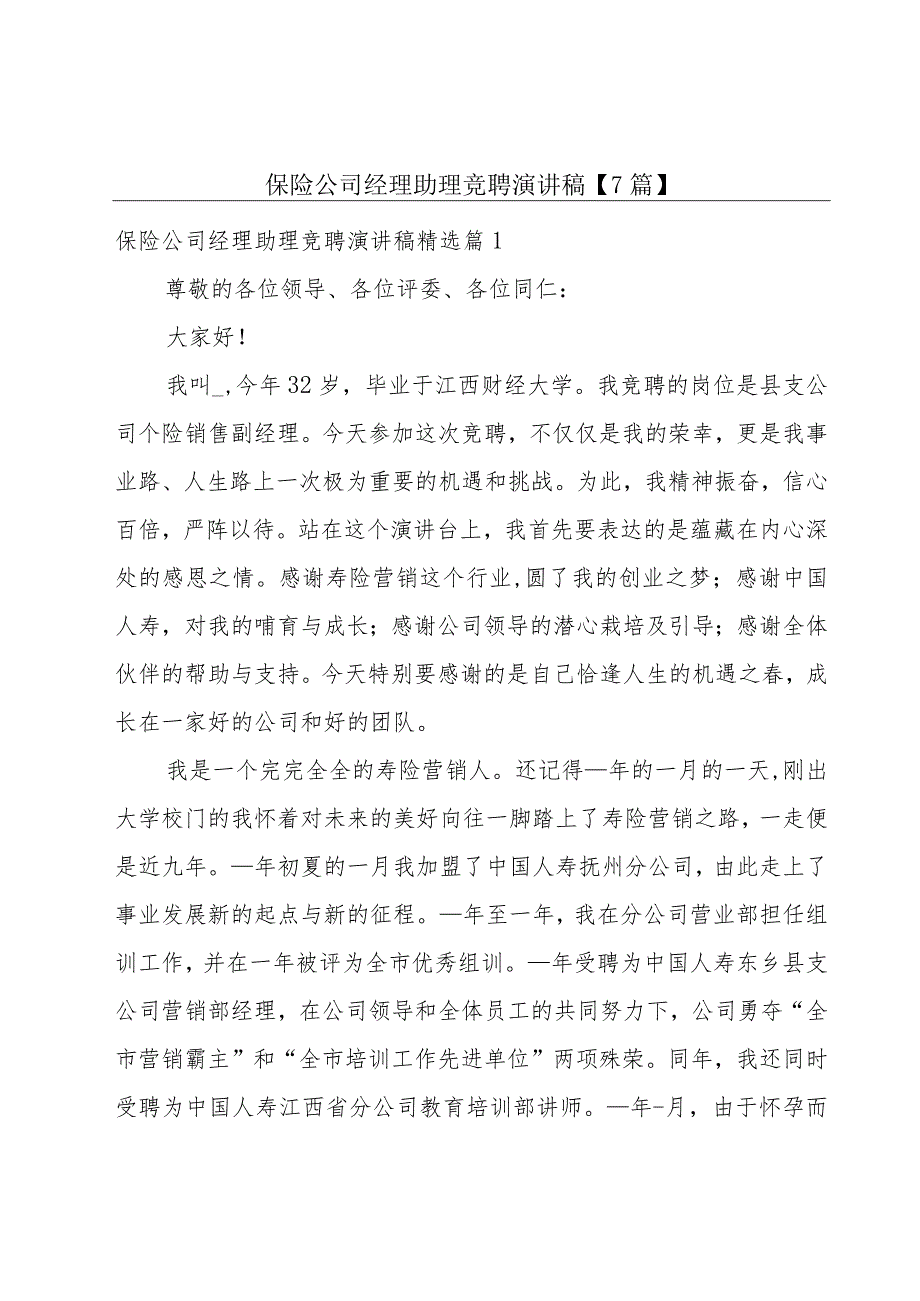 保险公司经理助理竞聘演讲稿【7 篇】
保险公司经理助理竞聘演讲稿精选篇 1
尊敬的各位领导、各位评委、各位同仁：
大家好！
我叫_,今年 32 岁，毕业于江西财经大学。我竞聘的岗位是县支公
司个险销售副经理。今天参加这次竞聘，不仅仅是我的荣幸，更是我事
业路、人生路上一次极为重要的机遇和挑战。为此，我精神振奋，信心
百倍，严阵以待。站在这个演讲台上，我首先要表达的是蕴藏在内心深
处的感恩之情。感谢寿险营销这个行业,圆了我的创业之梦；感谢中国
人寿，对我的哺育与成长；感谢公司领导的潜心栽培及引导；感谢全体
伙伴的帮助与支持。今天特别要感谢的是自己恰逢人生的机遇之春，成
长在一家好的公司和好的团队。
我是一个完完全全的寿险营销人。还记得—年的一月的一天,刚出
大学校门的我怀着对未来的美好向往一脚踏上了寿险营销之路，一走便
是近九年。—年初夏的一月我加盟了中国人寿抚州分公司，由此走上了
事业发展新的起点与新的征程。—年至一年，我在分公司营业部担任组
训工作，并在一年被评为全市优秀组训。—年受聘为中国人寿东乡县支
公司营销部经理，在公司领导和全体员工的共同努力下，公司勇夺“全
市营销霸主”和“全市培训工作先进单位”两项殊荣。同年，我还同时
受聘为中国人寿江西省分公司教育培训部讲师。—年-月，由于怀孕而